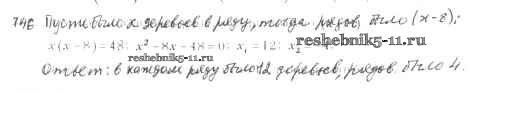 746 Пусть было x деревьев в ряду, тогда рядов было (x-8);
x(x – 8) = 48; x² – 8x – 48 = 0; x₁ = 12; x₂
reshebnik5-11.ru
reshebnik5-11.ru
Ответ: в каждом ряду было 12 деревьев, рядов было 4.